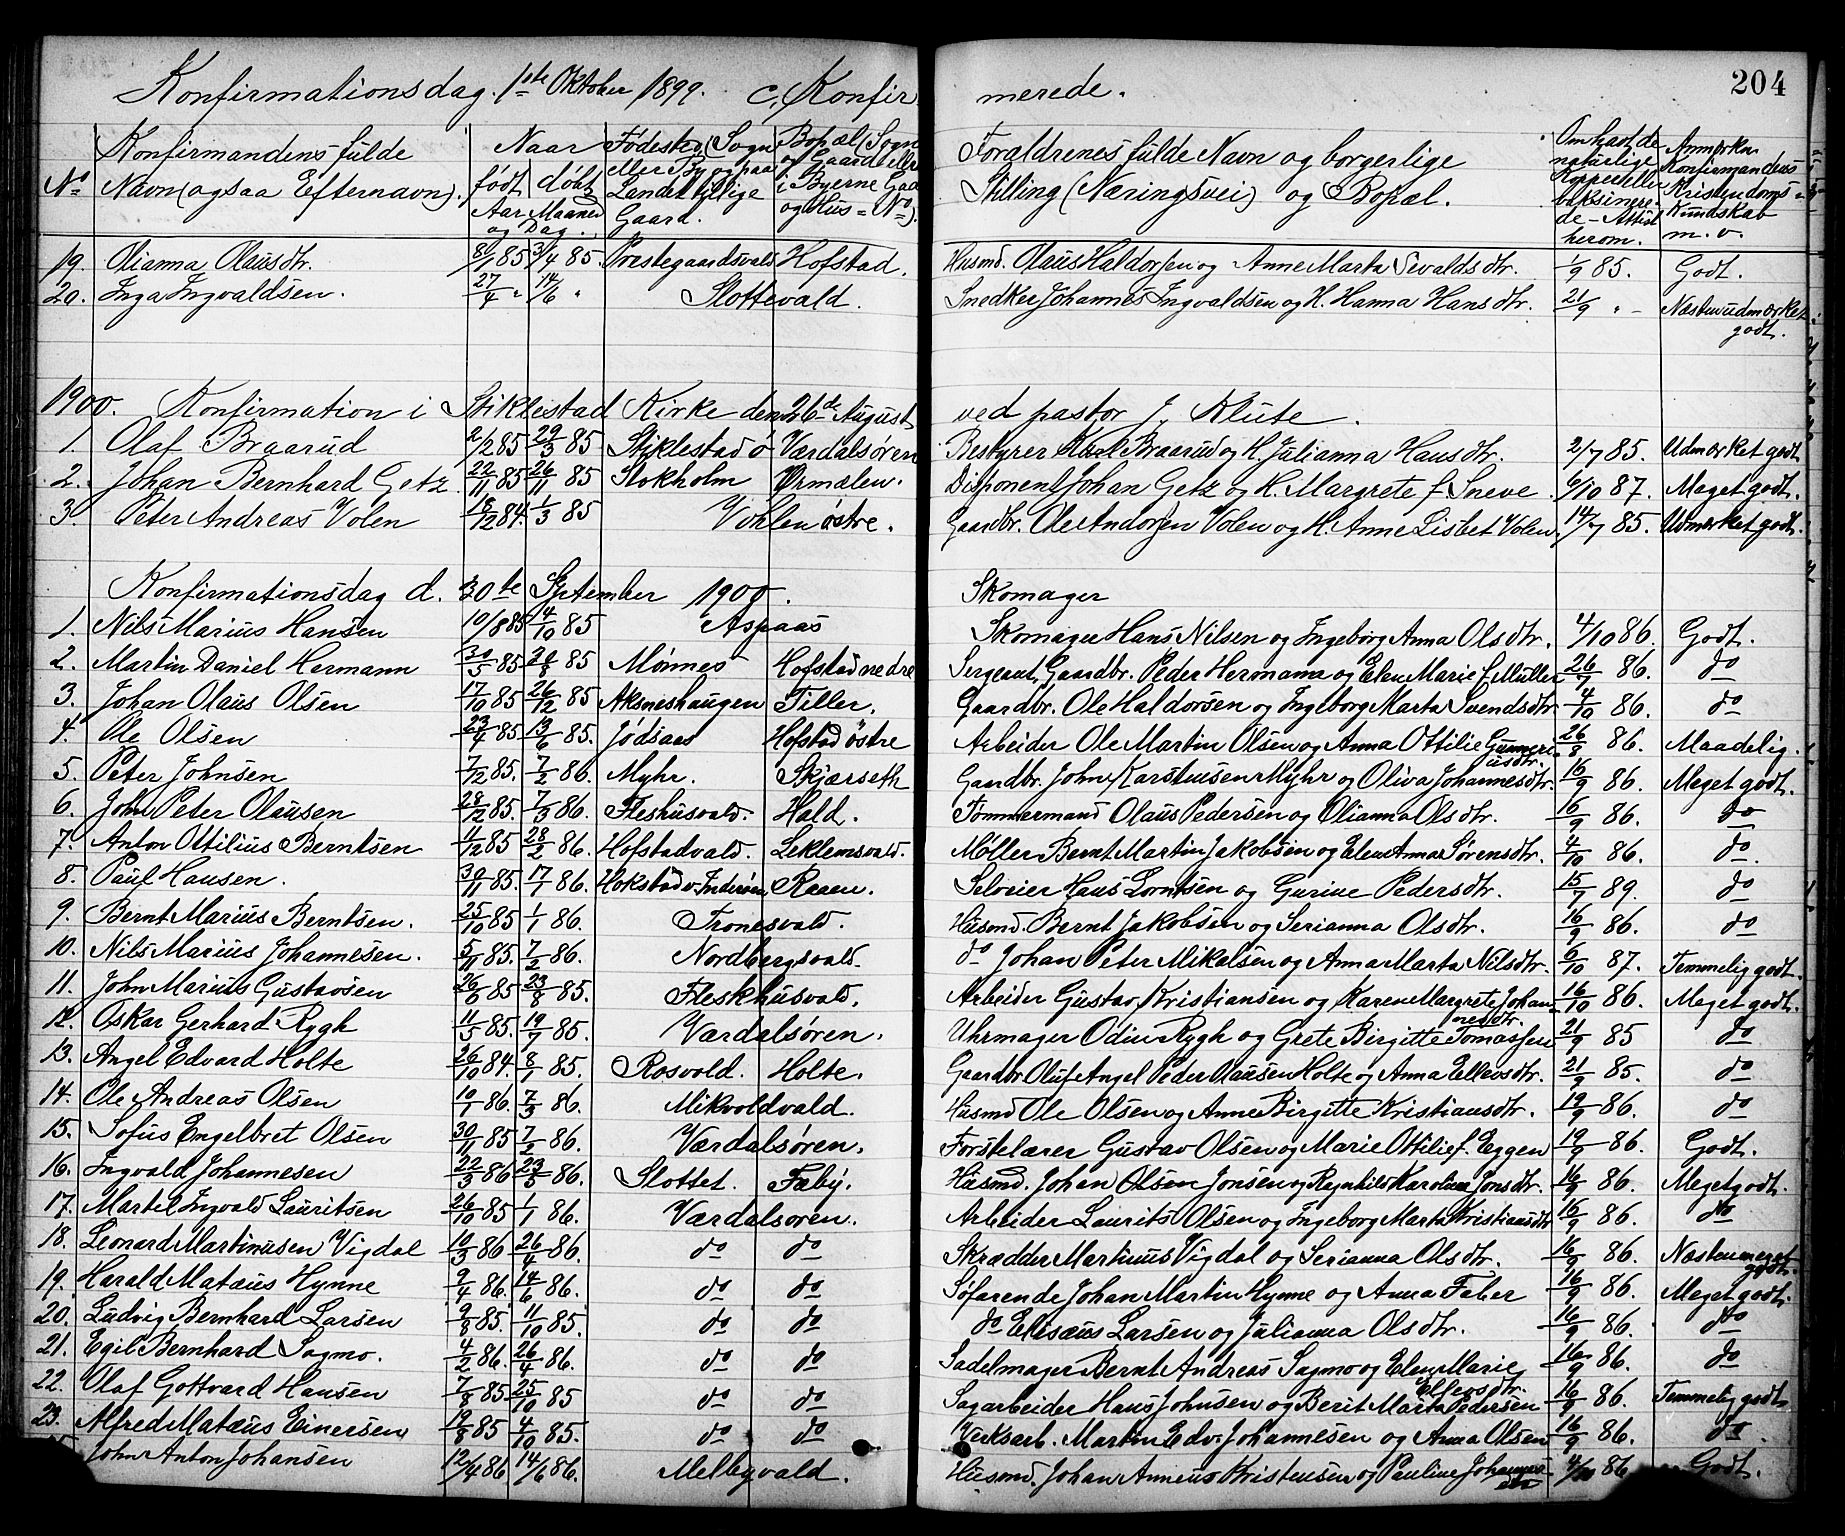 Konfirmationsdag. 1ste Oktober 1899. c, Konfirmerede. 204
No Konfirmandens fulde Navn (ogsaa Efternavn). Naar født døbt Aar Maaned og Dag. Fødested (Sogn eller By og paa Landet tillige Gaard. Bopæl (Sogn og Gaard eller i Byerne Gade og Hus = No). Forældrenes fulde Navn og borgerlige Stilling (Næringsvei) og Bopæl. Om havt de naturlige Kopper eller vaksinerede – Attest herom. Anmærkn. Konfirmandens Kristendoms = Kundskab m. v.
19. Olianna Olausdtr. 8/1 85 3/4 85. Prestegaardsvald Hofstad. Husmd. Olaus Haldorsen og Anne Marta Sevaldsdtr. 1/9 85. Godt.
20. Inga Ingvaldsen. 27/4 " 14/6 " Slottevald. Snedker Johannes Ingvaldsen og H. Hanna Hansdtr. 21/9 " - Næsten udmærket godt.
1900. Konfirmation i Stiklestad Kirke den 26de August ved pastor J. Klute.
1. Olaf Braarud 2/2 85 29/3 85 Stiklestad ø Værdalsøren Bestyrer Karl Braarud og H. Julianna Hansdtr. 2/7 85. Udmærket godt
2. Johan Bernhard Getz 22/11 85 26/11 85 Stokholm Ørmælen. Disponent Johan Getz og H. Margrete f. Sneve 6/10 87. Meget godt.
3. Peter Andreas Volen 18/12 84. 1/3 85 Vohlen østre. Gaardbr. Ole Andorsen Volen og H. Anne Lisbet Volen. 14/7 85. Udmærket godt.
Konfirmationsdag d. 30te September 1900. Skomager
1. Nils Marius Hansen 10/8 85 4/10 85 Aspaas Skomager Hans Nilsen og Ingeborg Anna Olsdtr. 4/10 86. Godt.
2. Martin Daniel Hermann 30/5 85 20/8 85 Mønnes Hofstad nedre Sergeant, Gaardbr. Peder Hermann og Elen Marie f. Müller 26/7 86. do
3. Johan Olaus Olsen 17/10 85 26/12 85 Aksneshaugen Tiller. Gaardbr. Ole Haldorsen og Ingeborg Marta Svendsdtr. 4/10 86. do
4. Ole Olsen 23/4 85. 13/6 85. Jødsaas Hofstad østre Arbeider Ole Martin Olsen og Anna Ottilie Gunneriusdtr. 26/8 86. Maadelig.
5. Peter Johnsen 7/12 85. 7/2 86. Myhr. Skjærseth Gaardbr. John Karstensen Myhr og Oliva Johannesdtr. 16/9 86. Meget godt.
6. John Peter Olausen 28/12 85. 7/3 86. Fleshusvald. Hald. Tømmermand Olaus Pedersen og Olianna Olsdtr. 16/9 86. do
7. Anton Ottilius Berntsen 11/12 85 28/2 86. Hofstadvald. Leklemsvald. Møller Bernt Martin Jakobsen og Elen Anna Sørensdtr. 4/10 86. do.
8. Paul Hansen. 30/11 85. 17/1 86. Hokstad v. Inderøen Raaen. Seloeier Hans Lorntsen og Gurine Pedersdtr. 15/7 89. do
9. Bernt Marius Berntsen. 25/10 85 1/1 86. Tronesvald. Husmd. Bernt Jakobsen og Serianna Olsdtr. 16/9 86. do
10. Nils Marius Johannesen. 5/11 85. 7/2 86. Nordbergsvald. do Johan Peter Mikalsen og Anna Marta Nilsdtr. 6/10 87. Temmelig godt.
11. John Marius Gustavsen 26/6 85 23/8 85. Fleskhusvald. Arbeider Gustav Kristiansen og Karen Margrete Johannesdtr. 16/10 86. Meget godt.
12. Oskar Gerhard Rygh 11/5 85. 19/7 85. Værdalsøren. Uhrmager Odin Rygh og Grete Birgitte Tomassen 21/9 85 do
13. Angel Edvard Holte 26/10 84. 8/1 85. Rosvold. Holte. Gaardbr. Oluf Angel Peder Olausen Holte og Anna Ellevsdtr. 21/9 85. do
14. Ole Andreas Olsen 10/1 86. 7/3 86. Mikvoldvald. Husmd Ole Olsen og Anne Birgitte Kristiansdtr. 19/9 86. do
15. Sofus Engelbret Olsen 30/11 85 7/2 86. Værdalsøren. Førstelærer Gustav Olsen og Marie Ottilie f. Eggen 19/9 86. Godt.
16. Ingvald Johannesen 22/3 86 23/5 86. Slottet. Fæby. Husmd. Johan Olsen Jonsen og Regnhild Karolina Jonsdtr. 16/9 86. Meget godt.
17. Martel Ingvald Lauritsen 26/10 85 1/1 86. Værdalsøren. Arbeider Laurits Olsen og Ingeborg Marta Kristiansdtr 16/9 86. do
18. Leonard Martinusen Vigdal 10/3 86 26/4 86. do do Skrædder Martinus Vigdal og Serianna Olsdtr. 16/9 86. Næsten meget godt.
19. Harald Matæus Hynne 9/4 86. 14/6 86. do do Søfarende Johan Martin Hynne og Anna Faber 16/9 86. Meget godt.
20. Ludvig Bernhard Larsen 9/8 85. 11/10 85. do do do Elisæus Larsen og Julianna Olsdtr. 16/9 86. do
21. Egil Bernhard Sagmo. 4/2 86. 26/4 86. do do Sadelmager Bernt Andreas Sagmo og Elen Marie Ellevsdtr. 16/9 86. do
22. Olaf Gottvard Hansen 7/8 85. 25/10 85 do do Sagarbeider Hans Johnsen og Berit Marta Pedersen 16/9 86. Temmelig godt.
23. Alfred Matæus Einersen 19/8 85 4/10 85. do do Verksarb. Martin Edv. Johannesen og Anna Olsen 16/9 86. do.
John Anton Johansen 12/4 86 14/6 86. Melbyvald. Husmd. Johan Anneus Kristensen og Pauline Johannesdtr 4/10 86 Godt.